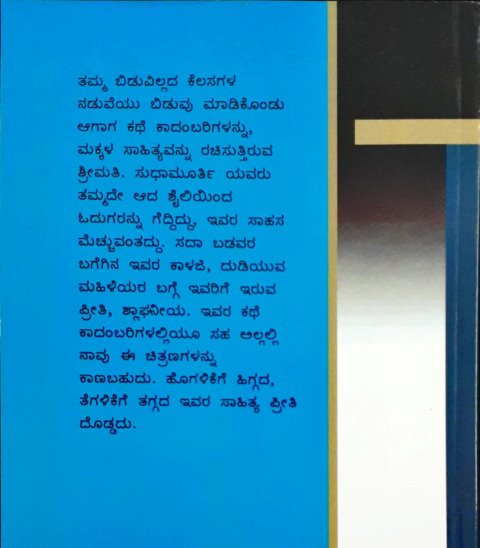 ತಮ್ಮ ಬಿಡುವಿಲ್ಲದ ಕೆಲಸಗಳ
ನಡುವೆಯು ಬಿಡುವು ಮಾಡಿಕೊಂಡು
ಆಗಾಗ ಕಥೆ ಕಾದಂಬರಿಗಳನ್ನು,
ಮಕ್ಕಳ ಸಾಹಿತ್ಯವನ್ನು ರಚಿಸುತ್ತಿರುವ
ಶ್ರೀಮತಿ. ಸುಧಾಮೂರ್ತಿ ಯವರು
ತಮ್ಮದೇ ಆದ ಶೈಲಿಯಿಂದ
ಓದುಗರನ್ನು ಗೆದ್ದಿದ್ದು, ಇವರ ಸಾಹಸ
ಮೆಚ್ಚುವಂತದ್ದು. ಸದಾ ಬಡವರ
ಬಗೆಗಿನ ಇವರ ಕಾಳಜಿ, ದುಡಿಯುವ
ಮಹಿಳೆಯರ ಬಗ್ಗೆ ಇವರಿಗೆ ಇರುವ
ಪ್ರೀತಿ, ಶ್ಲಾಘನೀಯ. ಇವರ ಕಥೆ
ಕಾದಂಬರಿಗಳಲ್ಲಿಯೂ ಸಹ ಅಲ್ಲಲ್ಲಿ
ನಾವು ಈ ಚಿತ್ರಣಗಳನ್ನು
ಕಾಣಬಹುದು. ಹೊಗಳಿಕೆಗೆ ಹಿಗ್ಗದ,
ತೆಗಳಿಕೆಗೆ ತಗ್ಗದ ಇವರ ಸಾಹಿತ್ಯ ಪ್ರೀತಿ
ದೊಡ್ಡದು.